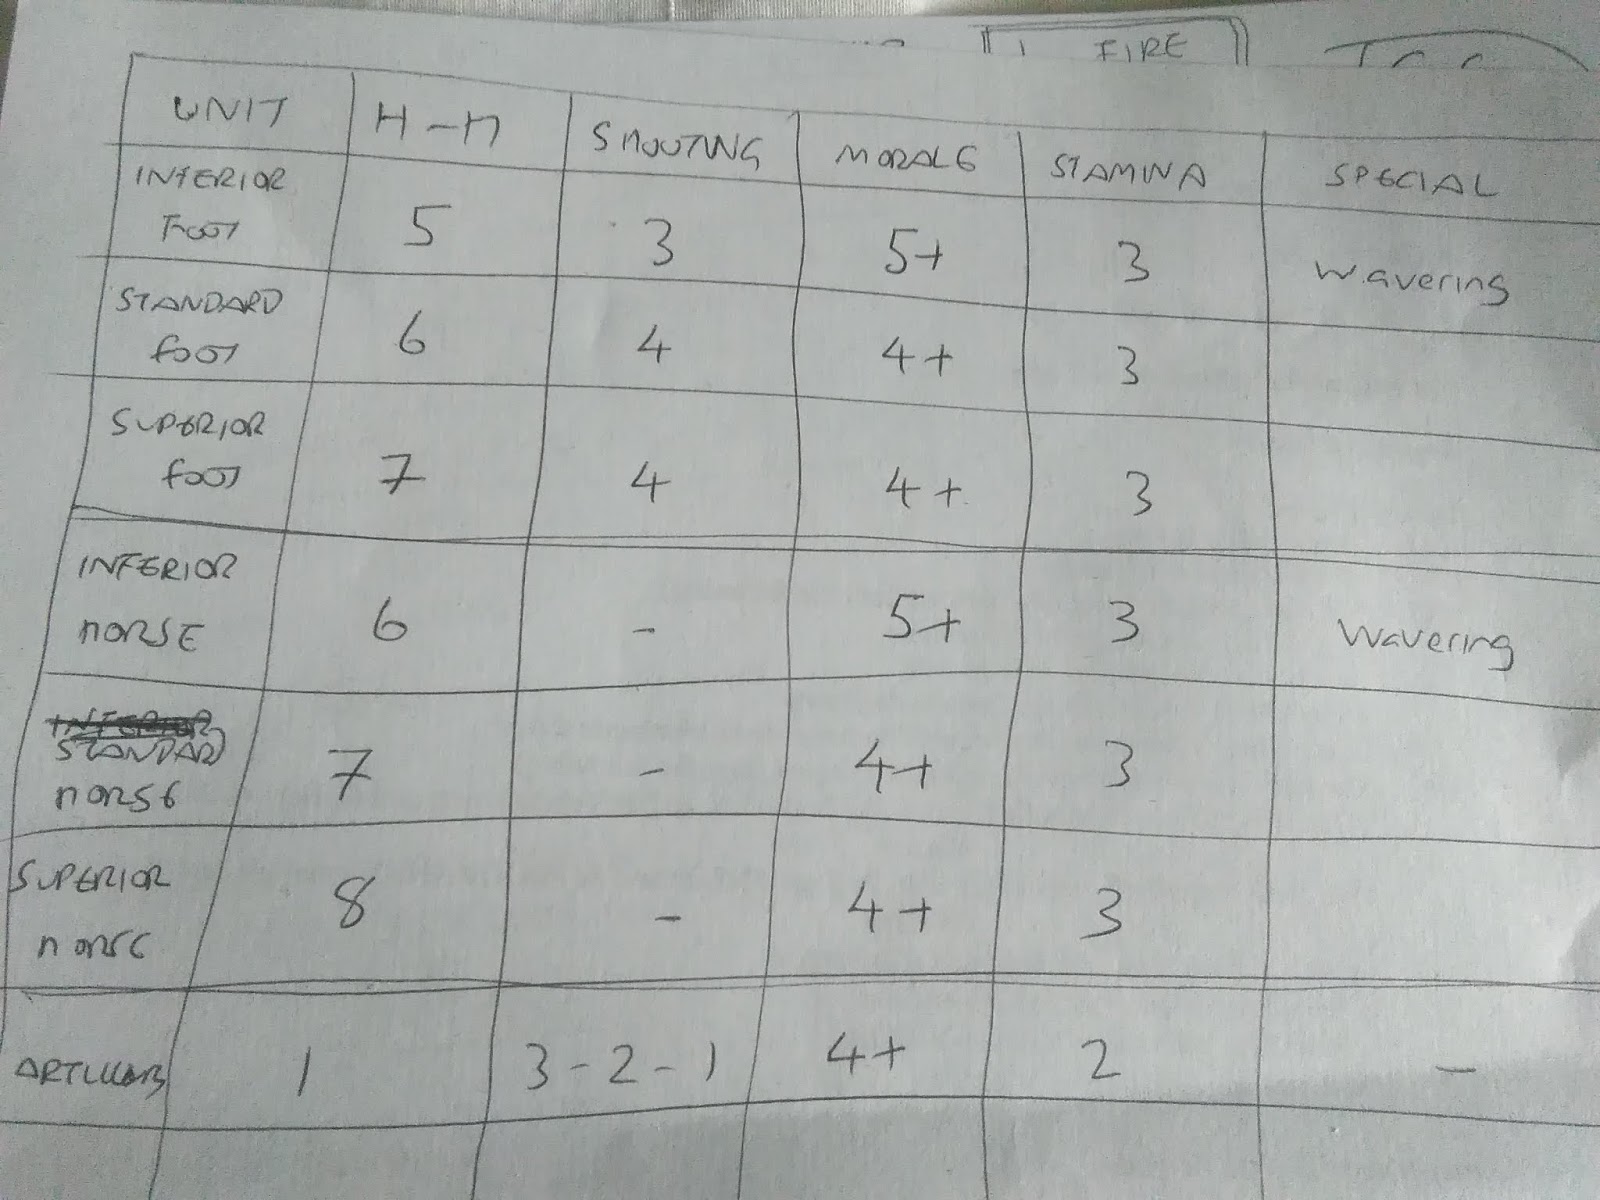 FIRE
UNIT H-H SHOOTING MORALE STAMINA SPECIAL
INFERIOR
FOOT 5 3 5+ 3 Wavering
STANDARD
FOOT 6 4 4+ 3
SUPERIOR
FOOT 7 4 4+ 3
INFERIOR
HORSE 6 - 5+ 3 Wavering
INFERIOR
STANDARD
HORSE 7 - 4+ 3
SUPERIOR
HORSE 8 - 4+ 3
ARTILLERY 1 3-2-1 4+ 2 -